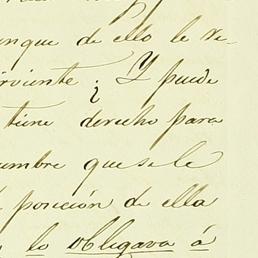 unque de ello le re-
rviente. ¿Y puede
tiene derecho para
umbre que se le
posición de ella
lo obligava á